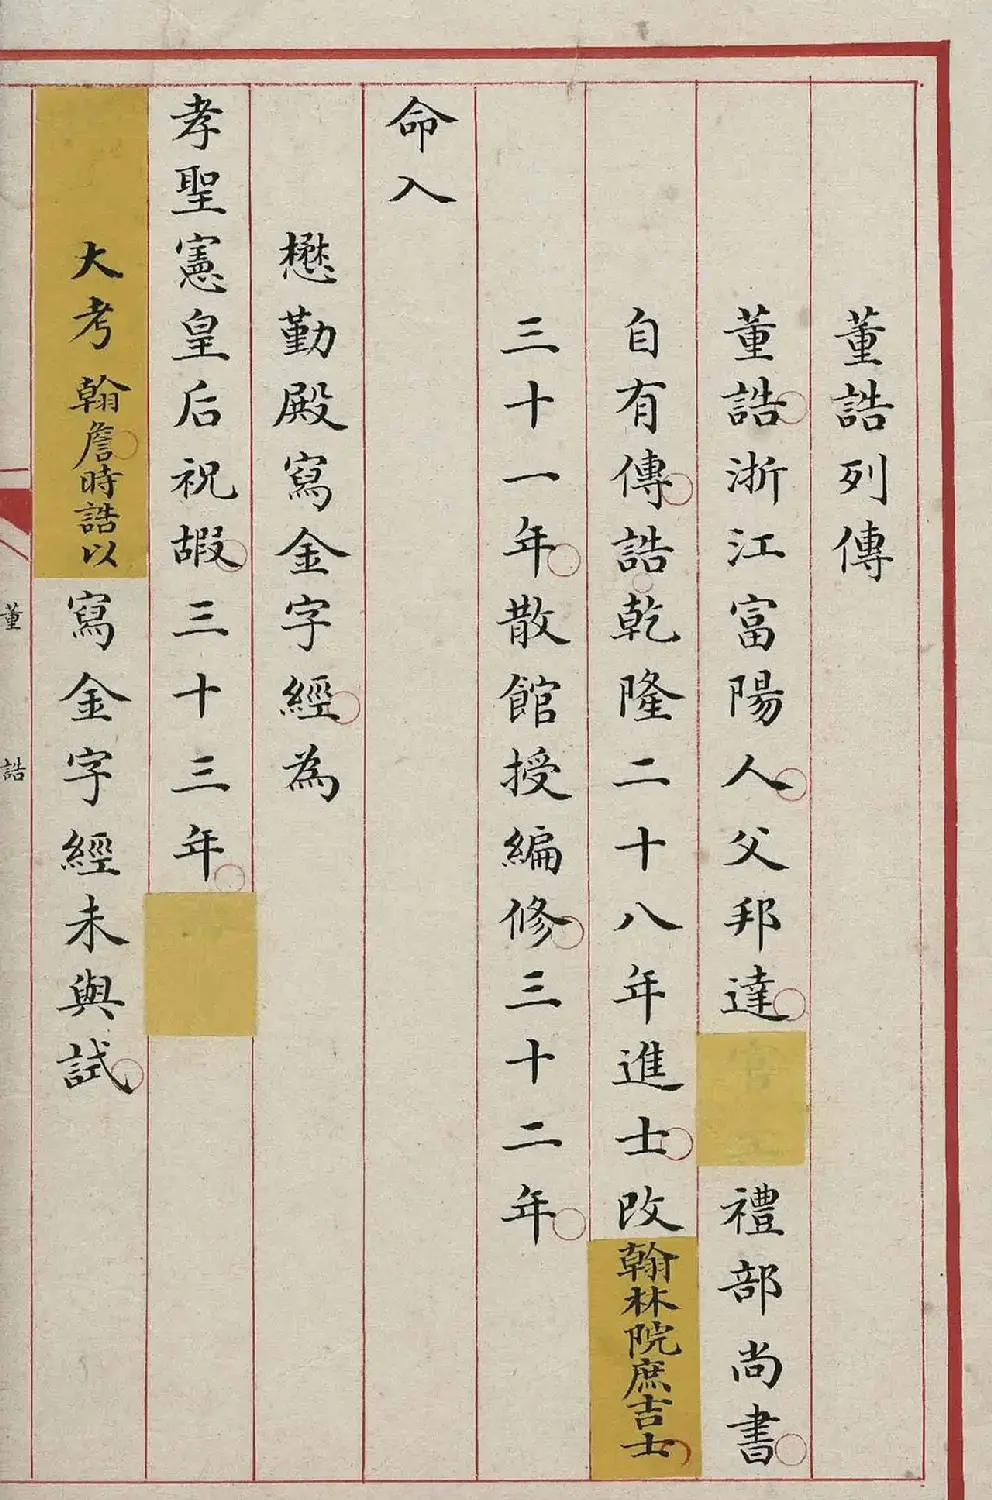 董誥列傳
董誥浙江富陽人父邦達禮部尚書
自有傳誥乾隆二十八年進士改翰林院庶吉士
三十一年散館授編修三十二年
命入
懋勤殿寫金字經為
孝聖憲皇后祝嘏三十三年
大考翰詹時誥以寫金字經未與試
董誥